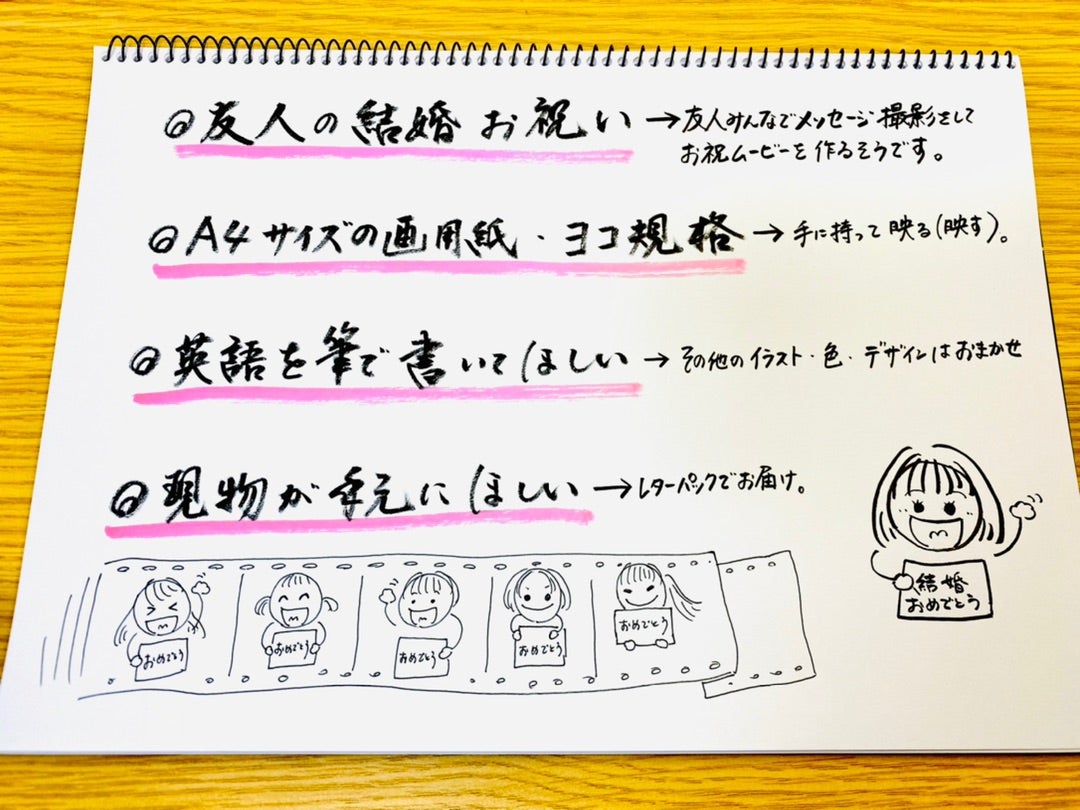 ◎友人の結婚お祝い→友人みんなでメッセージ撮影をして
お祝ムービーを作るそうです。
◎A4サイズの画用紙・ヨコ規格→手に持って映る(映す)。
◎英語を筆で書いてほしい→その他のイラスト・色・デザインはおまかせ
◎現物が手元にほしい→レターパックでお届け。
結婚
おめでとう
おめでとう
おめでとう
おめでとう
おめでとう
おめでとう